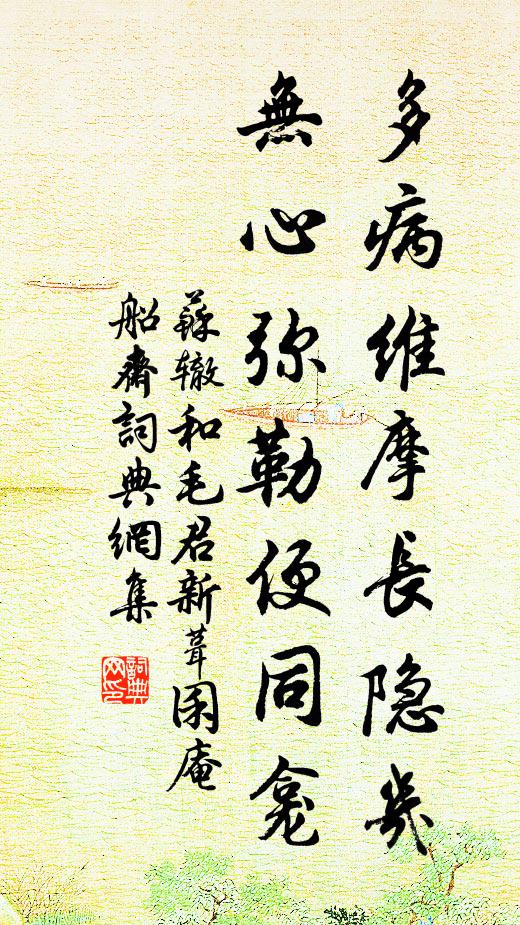 多病維摩長隐幾
無心弥勒便同龛
蘇辙和毛君新葺困庵
船齋詞典網集
詞典网印